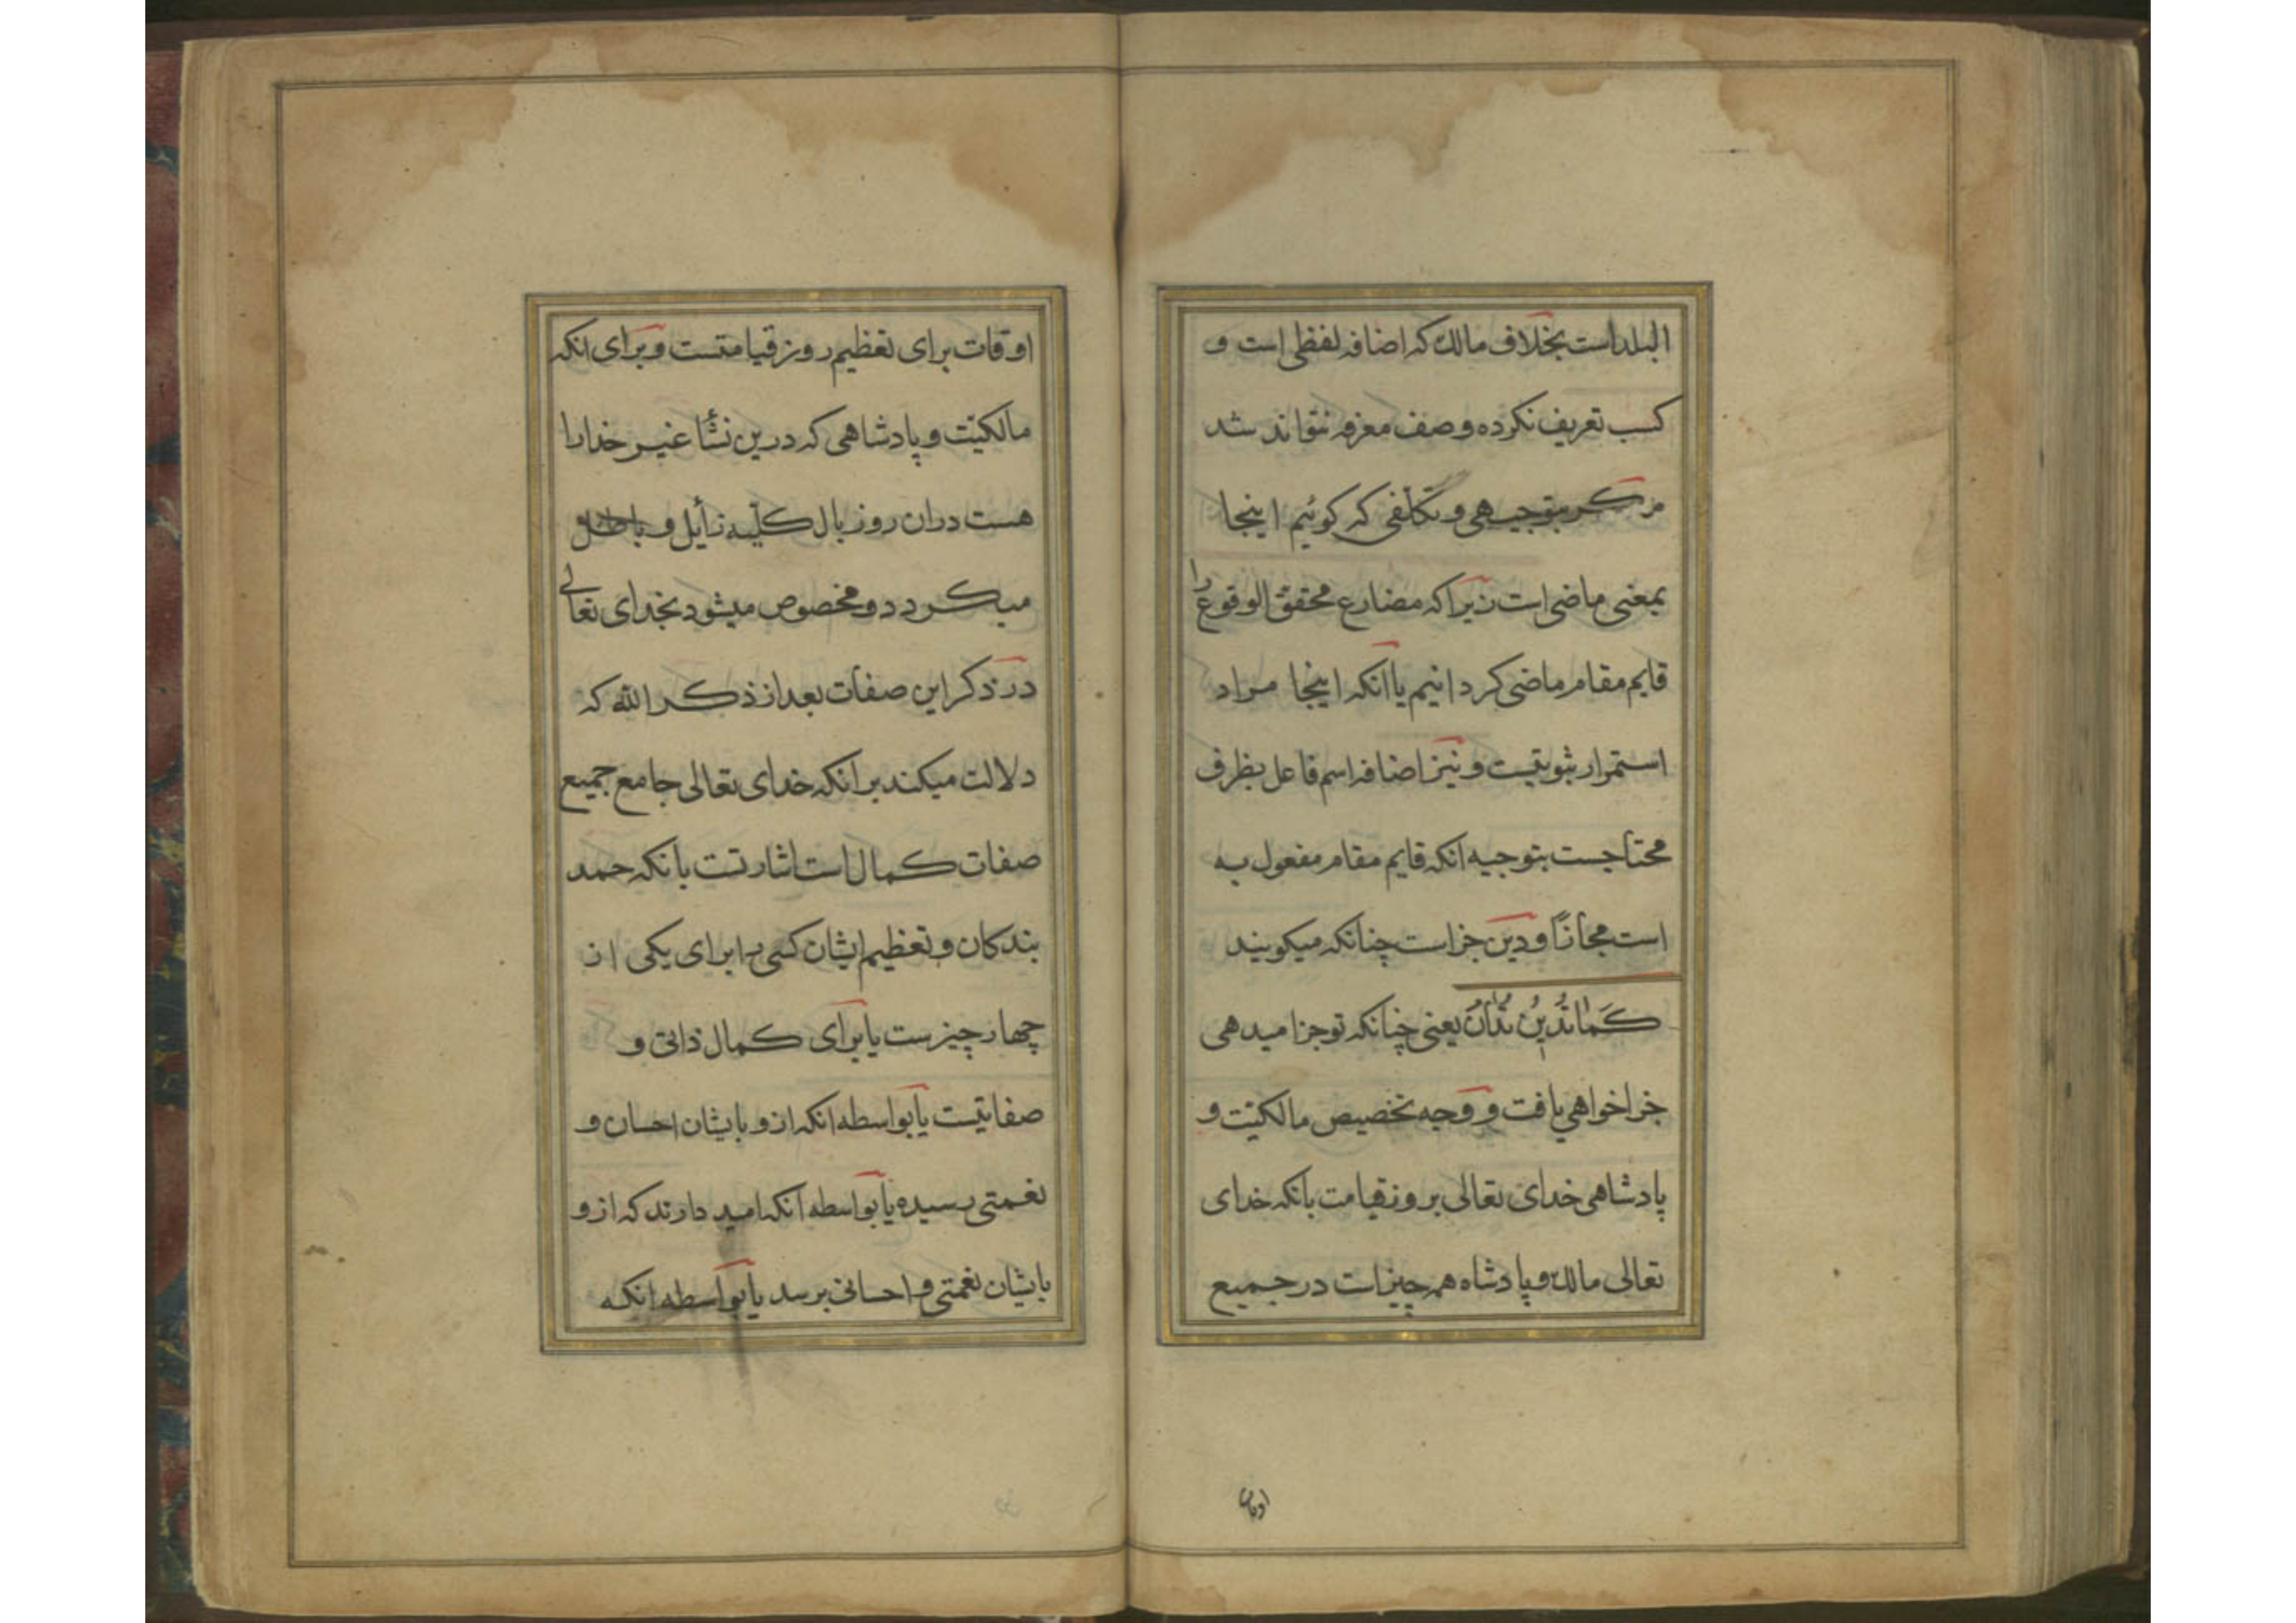 البلد است بخلاف مالک که اضافه لفظی است و
کسب تعریف نکرده وصف معرفه نتواند شد
مگر بتوجیهی و تکلفی که کوئیم اینجا
بمعنی ماضی است زیرا که مضارع محقق الوقوع را
قایم مقام ماضی کردانیم یا آنکه اینجا مراد
استمرار ثبوتیست و نیز اضافه اسم فاعل بظرف
محتاجست بتوجیه انکه قایم مقام مفعول به
است مجازاً و دین جزاست چنانکه میکویند
کَمٰا تُدٖینُ تُدٰانُ یعنی چنانکه تو جزا میدهی
جزا خواهی یافت و وجه تخصیص مالکیّت و
پادشاهی خدای تعالی بروز قیامت بانکه خدای
تعالی مالک و پادشاه همه چیز است در جمیع
اوقات
اوقات برای تعظیم روز قیامتست و برای انکه
مالکیّت و پادشاهی که درین نشأ غیر خدا را
هست دران روز بال کلّیه زأیل و باطل
میکردد و مخصوص میشود بخدای تعالی
در ذکر این صفات بعد از ذکر الله که
دلالت میکند بر انکه خدای تعالی جامع جمیع
صفات کمال است اشارتست بانکه حمد
بندکان و تعظیم ایشان کسی را برای یکی از
چهار چیزست یا برای کمال ذاتی و
صفاتیست یا بواسطه انکه ازو بایشان احسان و
نعمتی رسیده یا بواسطه انکه امید دارند که ازو
بایشان نعمتی و احسانی برسد یا بواسطه انکه